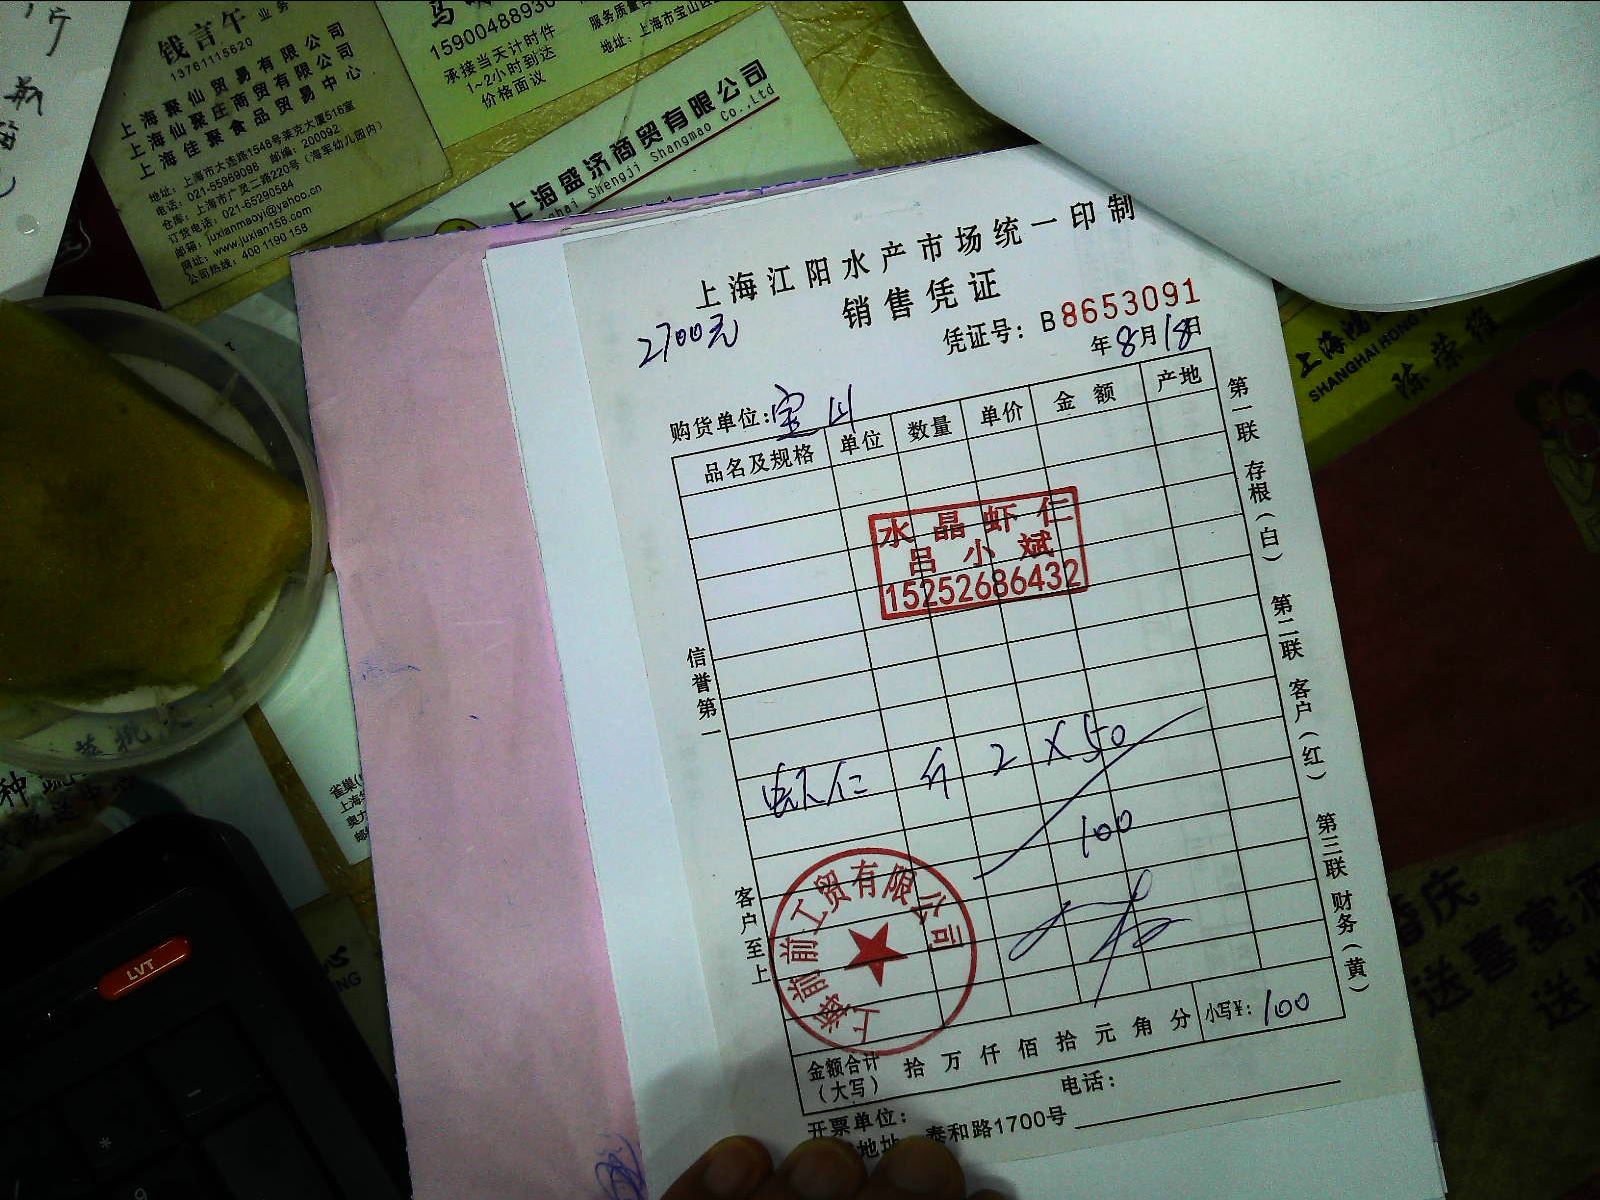 钱言午 业务
13761115620
上海聚仙贸易有限公司
上海仙聚庄商贸有限公司
上海佳聚食品贸易中心
地址：上海市大连路1548号莱克大厦516室
电话：021-55969098 邮编：200092
仓库：上海市广灵二路220号（海军幼儿园内）
订货电话：021-65290584
邮箱：juxianmaoyi@yahoo.cn
网址：www.juxian158.com
公司热线：408 1190 158
承接当天计时件
1~2小时到达
价格面议
地址：上海市宝山区
上海盛济商贸有限公司
Shengji Shangmao Co.,Ltd
上海江阳水产市场统一印制
销售凭证
2700元
凭证号：B8653091
年8月18日
购货单位：宝山
品名及规格 单位 数量 单价 金额 产地
水晶虾仁
吕小斌
15252686432
虾仁 斤 2 X 50
100
上海前前工贸有限公司
金额合计（大写） 拾万仟佰拾元角分 小写¥：100
开票单位： 电话：
泰和路1700号
信誉第一
客户至上
第一联 存根（白） 第二联 客户（红） 第三联 财务（黄）
SHANGHAI HONG
陈荣雍
LVT
送喜宴酒